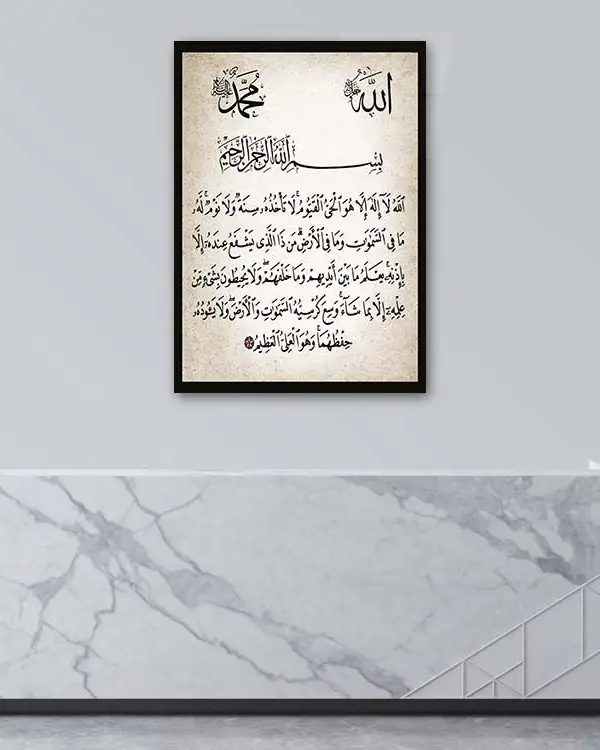 الله جل جلاله محمد
بِسْمِ ٱللَّهِ ٱلرَّحْمَٰنِ ٱلرَّحِيمِ
ٱللَّهُ لَآ إِلَٰهَ إِلَّا هُوَ ٱلْحَىُّ ٱلْقَيُّومُ ۚ لَا تَأْخُذُهُۥ سِنَةٌ وَلَا نَوْمٌ ۚ لَّهُۥ
مَا فِى ٱلسَّمَٰوَٰتِ وَمَا فِى ٱلْأَرْضِ ۗ مَن ذَا ٱلَّذِى يَشْفَعُ عِندَهُۥٓ إِلَّا
بِإِذْنِهِۦ ۚ يَعْلَمُ مَا بَيْنَ أَيْدِيهِمْ وَمَا خَلْفَهُمْ ۖ وَلَا يُحِيطُونَ بِشَىْءٍ مِّنْ
عِلْمِهِۦٓ إِلَّا بِمَا شَآءَ ۚ وَسِعَ كُرْسِيُّهُ ٱلسَّمَٰوَٰتِ وَٱلْأَرْضَ ۖ وَلَا يَـُٔودُهُۥ
حِفْظُهُمَا ۚ وَهُوَ ٱلْعَلِىُّ ٱلْعَظِيمُ